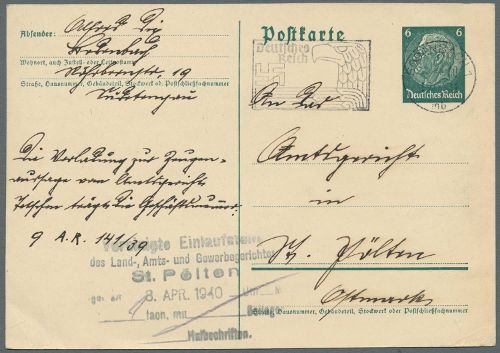 Absender: Alfred Dix
Bodenbach
Wohnort, auch Zustell- oder Leitpostamt
19
Straße, Hausnummer, Gebäudeteil, Stockwerk od. Postschließfachnummer
Sudetengau
Die Vorladung zur Zeugen=
aussage vom Amtsgericht
Tetschen trägt die Geschäftsnummer:
9 A.R. 141/39
Postkarte
Deutsches
Reich
6 6
Deutsches Reich
An das
Amtsgericht
in
St. Pölten
Ostmark
Straße, Hausnummer, Gebäudeteil, Stockwerk od. Postschließfachnummer
Einlaufstelle
des Land-, Amts- und Gewerbegerichtes
St. Pölten
8. APR. 1940
fach, mit Beilagen
Halbschriften.